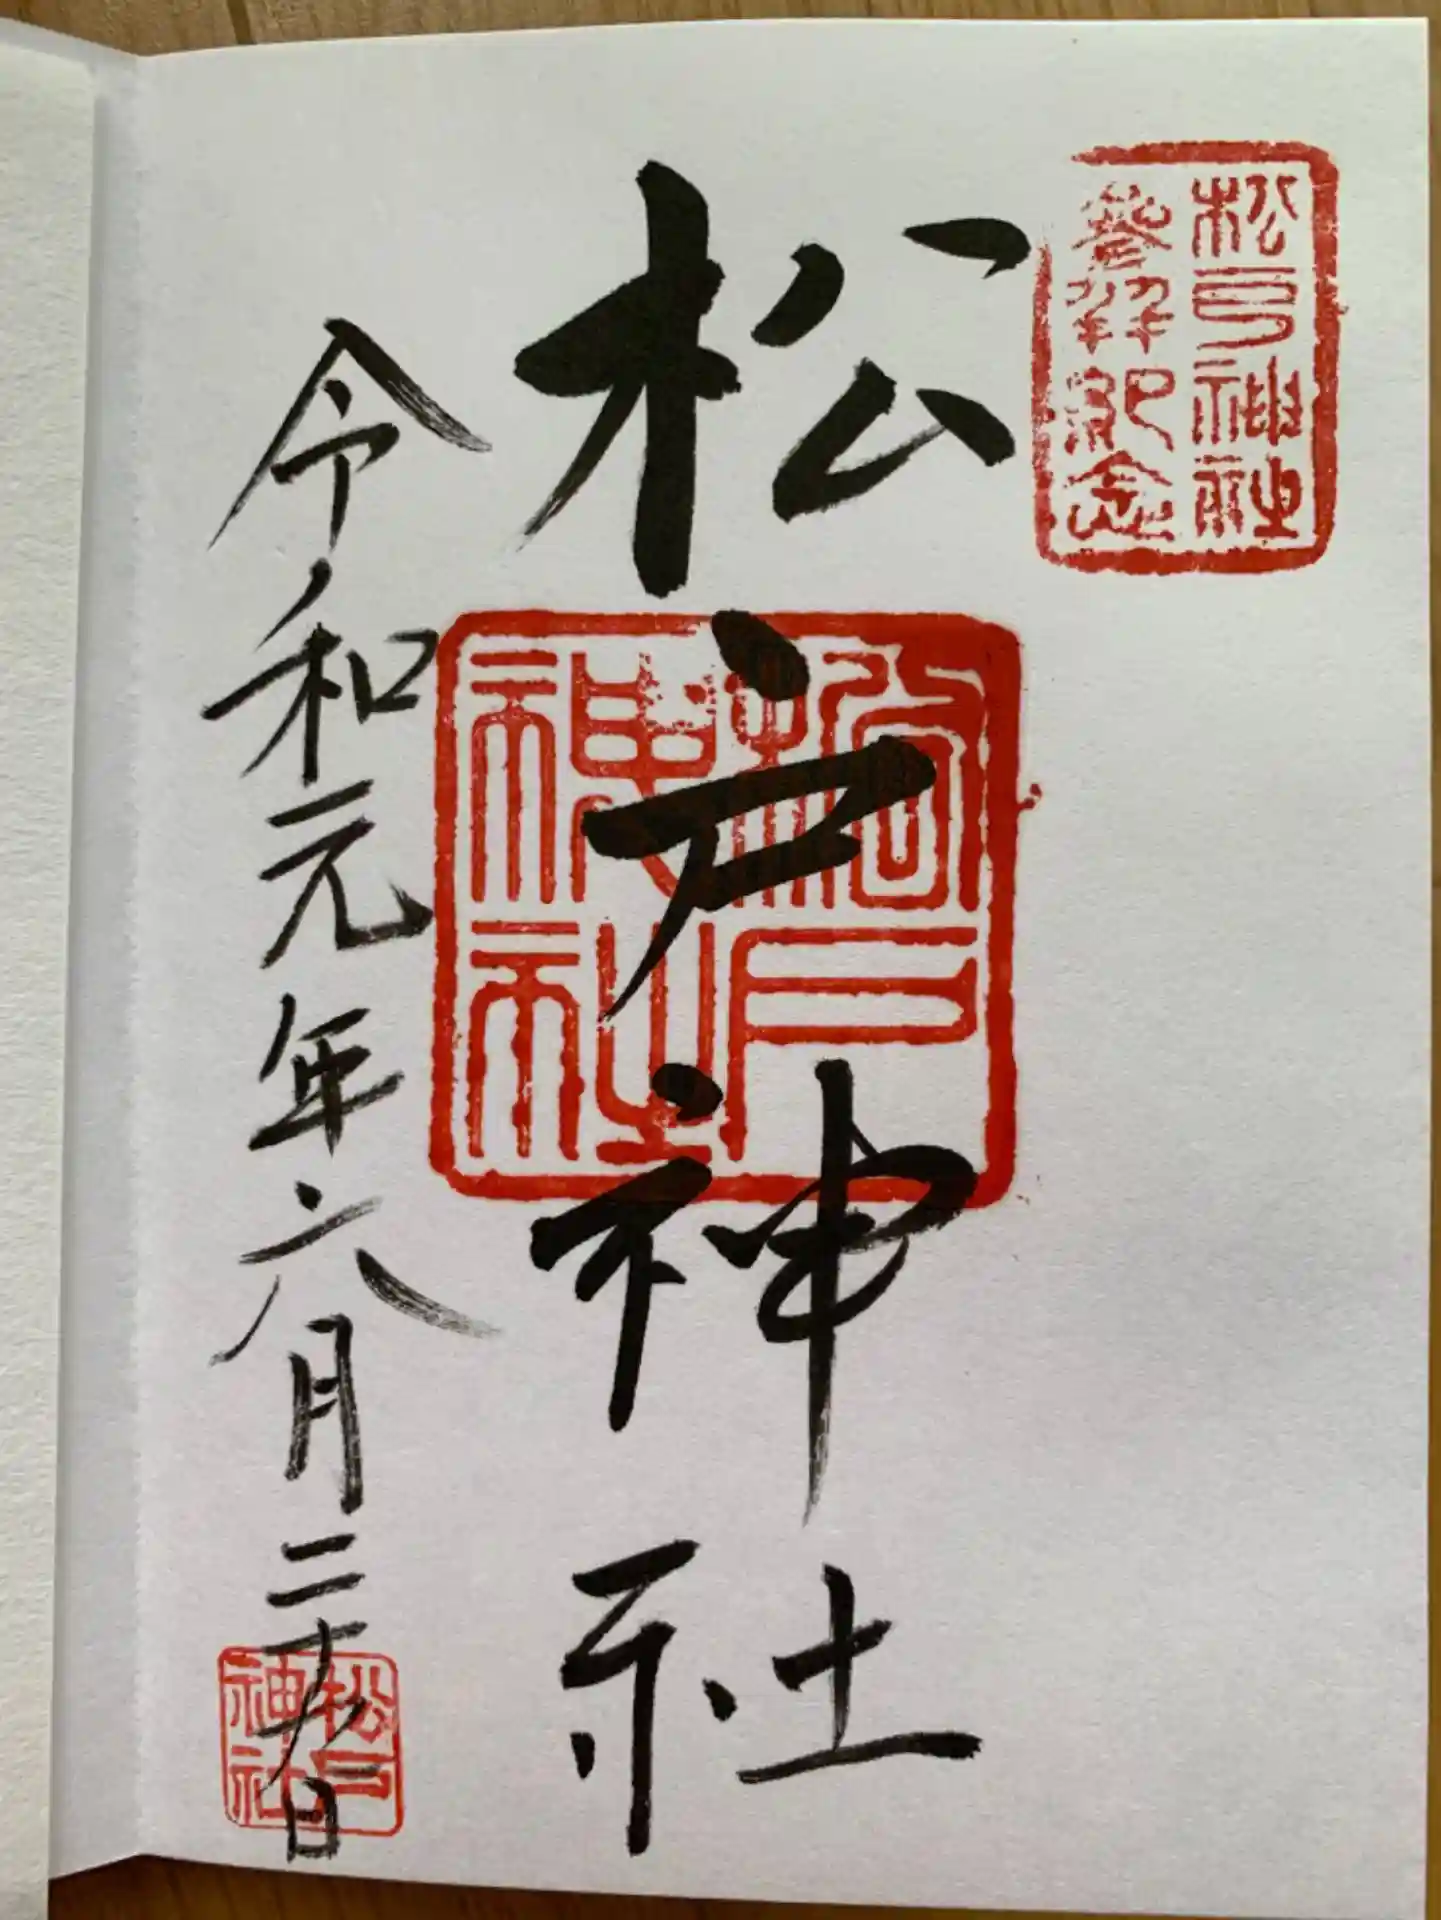 松戸神社
参拝記念
松戸神社
松戸
神社
令和元年六月二十九日
松戸
神社